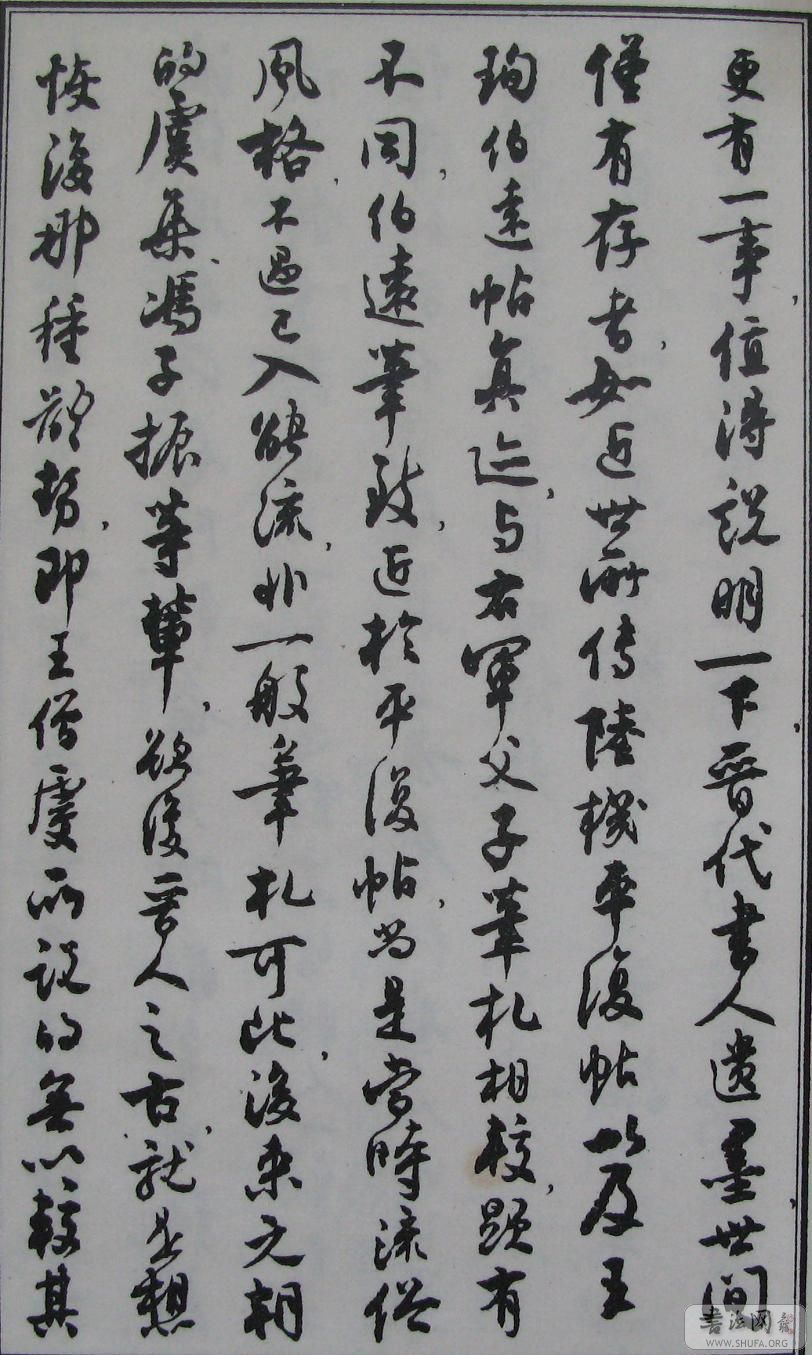 更有一事，值得説明一下，晉代書人遺墨，世間
僅有存者，如近世所傳陸機平復帖以及王
珣伯遠帖真迹，与右軍父子筆札相較，顯有
不同，伯遠筆致，近於平復帖，當是當時流俗
風格，不過已入能流，非一般筆札可比，後來元朝
的虞集、馮子振等輩，欲復晉人之古，就是想
恢復那種體勢，即王僧虔所説的無以較其
書法网
WWW.SHUFA.ORG